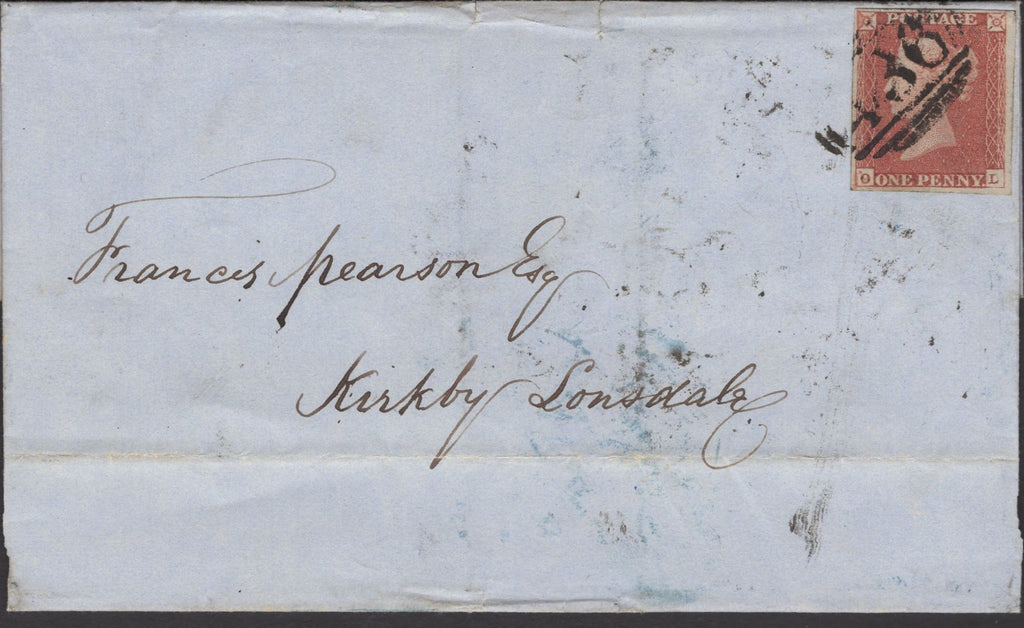 POSTAGE
O ONE PENNY. L
Francis Pearson Esq
Kirkby Lonsdale